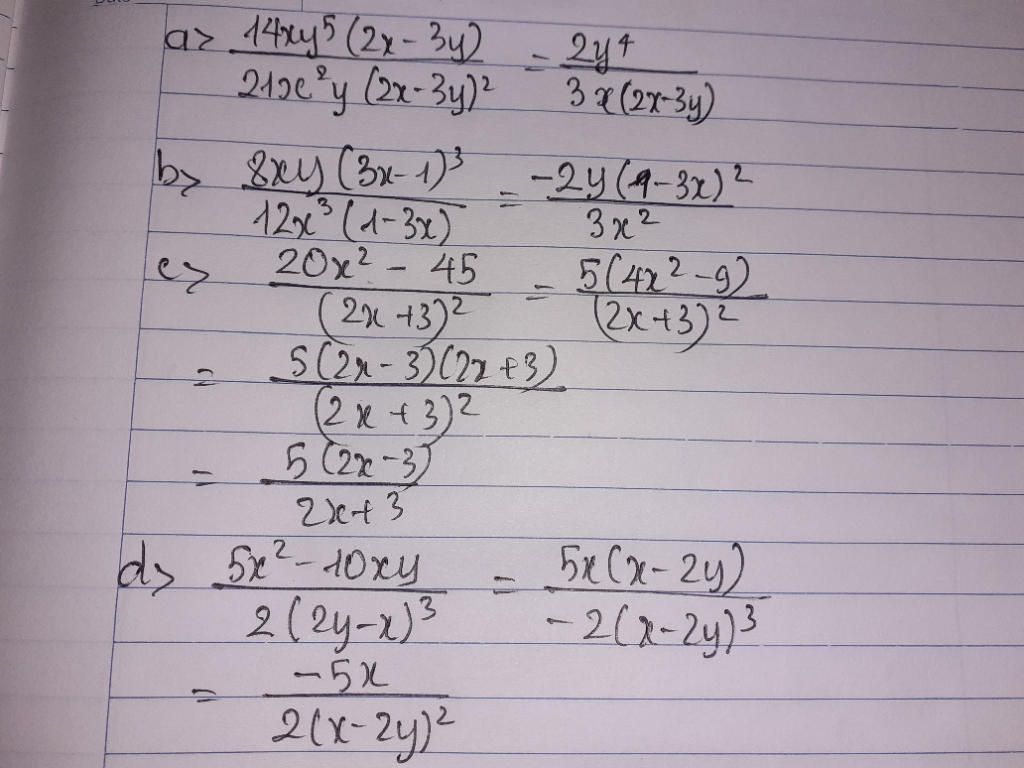 a> 14xy⁵(2x-3y) / 21x²y(2x-3y)² = 2y⁴ / 3x(2x-3y)
b> 8xy(3x-1)³ / 12x³(1-3x) = -2y(1-3x)² / 3x²
c> 20x² - 45 / (2x+3)² = 5(4x²-9) / (2x+3)²
= 5(2x-3)(2x+3) / (2x+3)²
= 5(2x-3) / 2x+3
d> 5x²-10xy / 2(2y-x)³ = 5x(x-2y) / -2(x-2y)³
= -5x / 2(x-2y)²